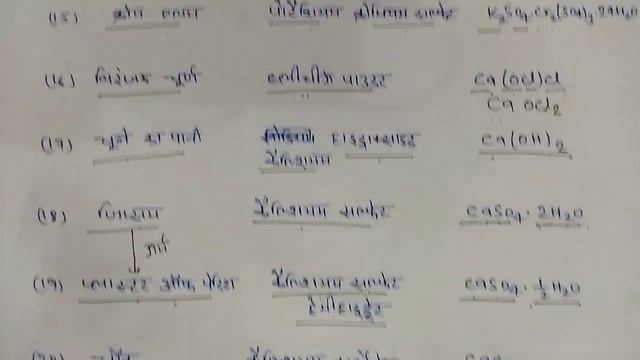 (15) क्रोम एलम पोटैशियम क्रोमियम सल्फेट K₂SO₄.Cr₂(SO₄)₃.24H₂O
(16) विरंजक चूर्ण ब्लीचिंग पाउडर Ca(OCl)Cl
CaOCl₂
(17) चूने का पानी हाइड्राक्साइड Ca(OH)₂
कैल्शियम
(18) जिप्सम कैल्शियम सल्फेट CaSO₄.2H₂O
गर्म
(19) प्लास्टर ऑफ पेरिस कैल्शियम सल्फेट CaSO₄.½H₂O
हेमीहाइड्रेट